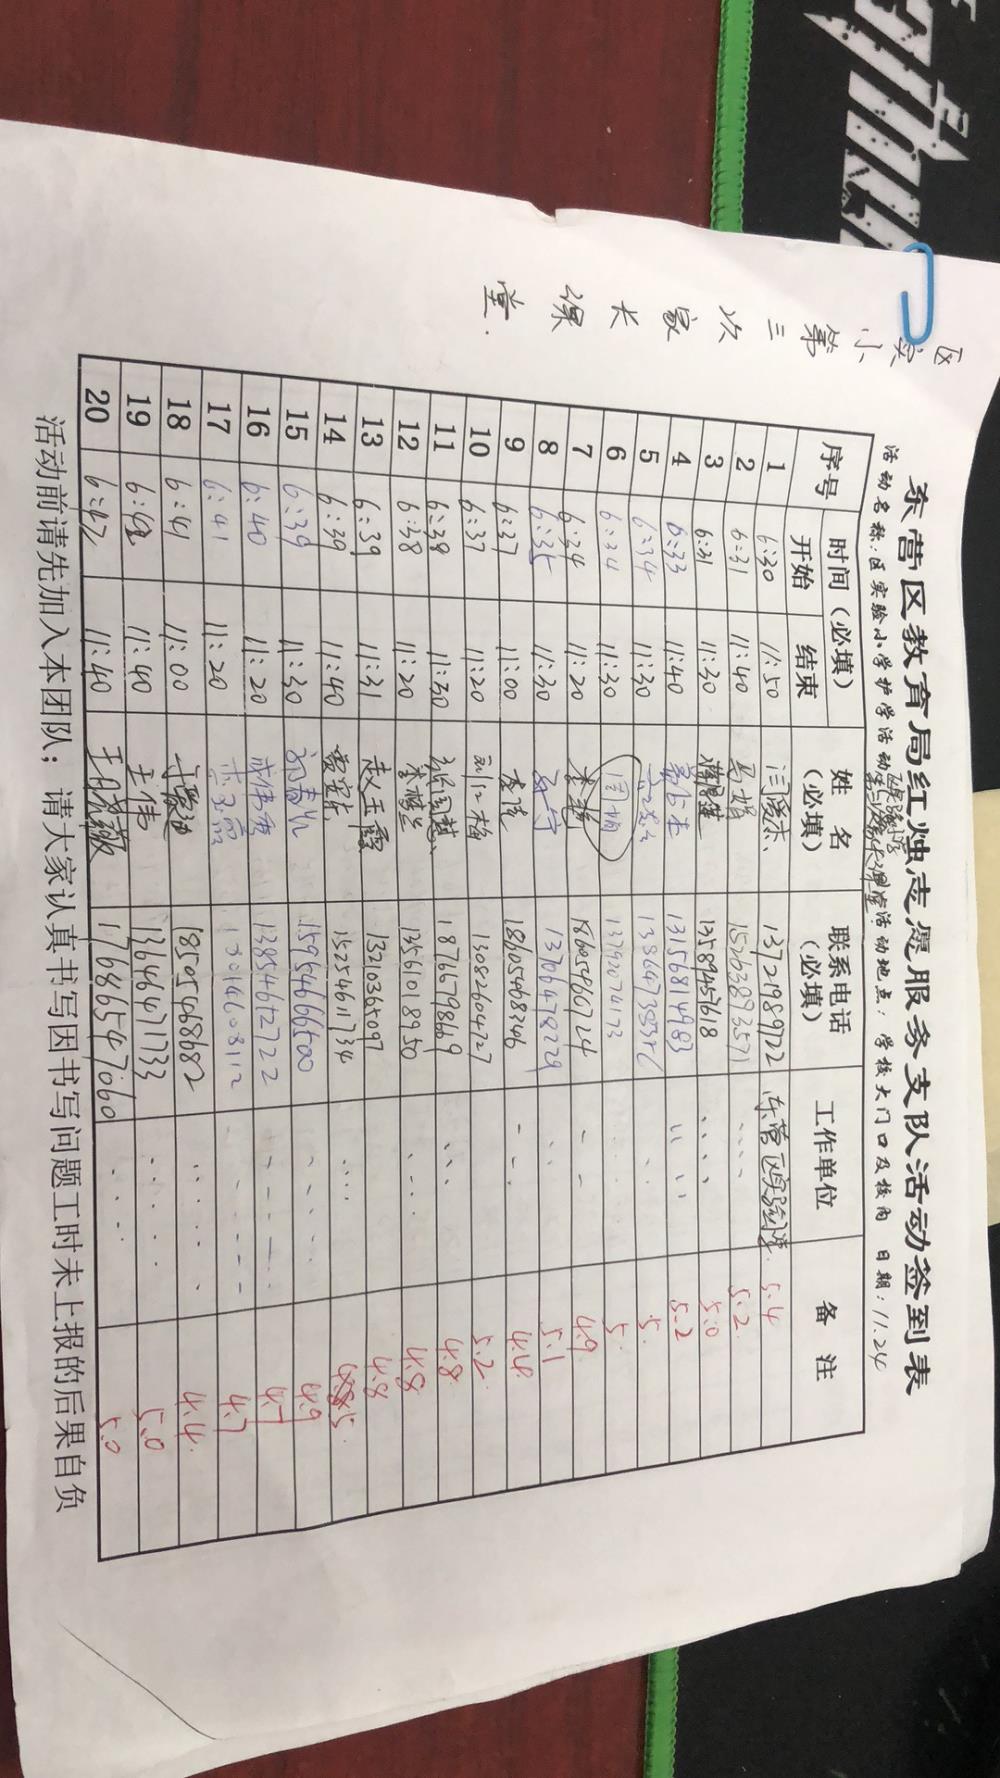 区实小第三次家长课堂.
东营区教育局红烛志愿服务支队活动签到表
活动名称:区实验小学护学活动 活动地点:学校大门口及校内 日期:11.24
序号 时间(必填) 姓名(必填) 联系电话(必填) 工作单位 备注
开始 结束
1 6:30 11:50 闫爱杰 13721989722 东营区实验小学 5.4
2 6:31 11:40 马娟 15263893571 5.2
3 6:31 11:30 12589457618 5.0
4 6:33 11:40 13156814983 5.2
5 6:34 11:30 5
6 6:34 11:30 周娟 13792074173 5
7 6:34 11:20 18605960724 4.9
8 6:35 11:30 13706478229 5.1
9 6:37 11:00 李陵 18605468346 4.4
10 6:37 11:20 刘江梅 13082604727 5.2
11 6:38 11:30 18766798669 4.8
12 6:38 11:20 李棋兰 13561018950 4.8
13 6:39 11:31 赵玉霞 13210365097 4.8
14 6:39 11:40 15254611734 5
15 6:39 11:30 15954666500 4.9
16 6:40 11:20 13854612722 4.7
17 6:41 11:20 13014608112 4.7
18 6:41 11:00 18505468682 4.4
19 6:42 11:40 王伟 13646471733 5.0
20 6:42 11:40 王晓薇 17686547060 5.0
活动前请先加入本团队；请大家认真书写因书写问题工时未上报的后果自负